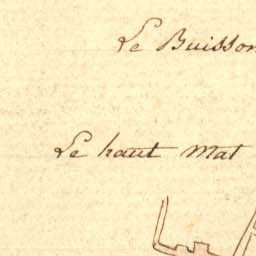 Le Buisson
Le haut Mat